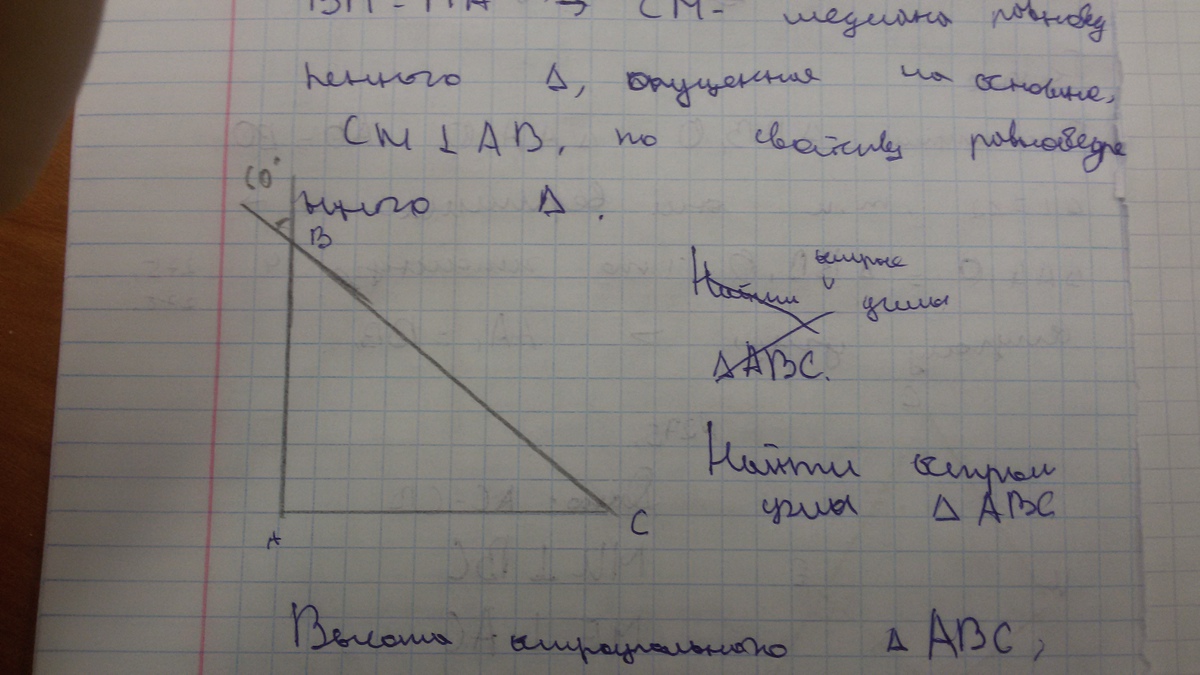 СМ - медиана равнобед
ренного Δ, опущенная на основание,
СМ ⊥ АВ, по свойству равнобедре
нного Δ.
60°
В
Найти острые углы
Δ АВС.
Найти острые
углы Δ АВС
А
С
Высота остроугольного Δ АВС,